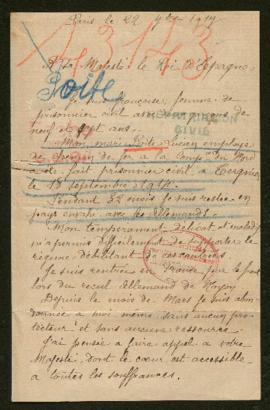 Paris le 22 9bre 1917
A sa Majesté le Roi d'Espagne,
Poite
Je suis française, femme de
prisonnier civil
neuf et sept ans.
CIVIL
Mon mari Poite Lucien employé
de chemin de fer à la Comp. du Nord
a été fait prisonnier civil à Tergnier
le 15 septembre 1914.
Pendant 32 mois je suis restée en
pays envahi avec les Allemands.
Mon tempérament délicat et maladif
m'a permis difficilement de supporter le
régime débilitant de ces contrées
Je suis rentrée en France par le front
lors du recul Allemand de Noyon
Depuis le mois de Mars je suis aban-
donnée à moi même sans aucun pro-
tecteur et sans aucune ressource.
J'ai pensé à faire appel à votre
Majesté, dont le cœur est accessible
à toutes les souffrances.